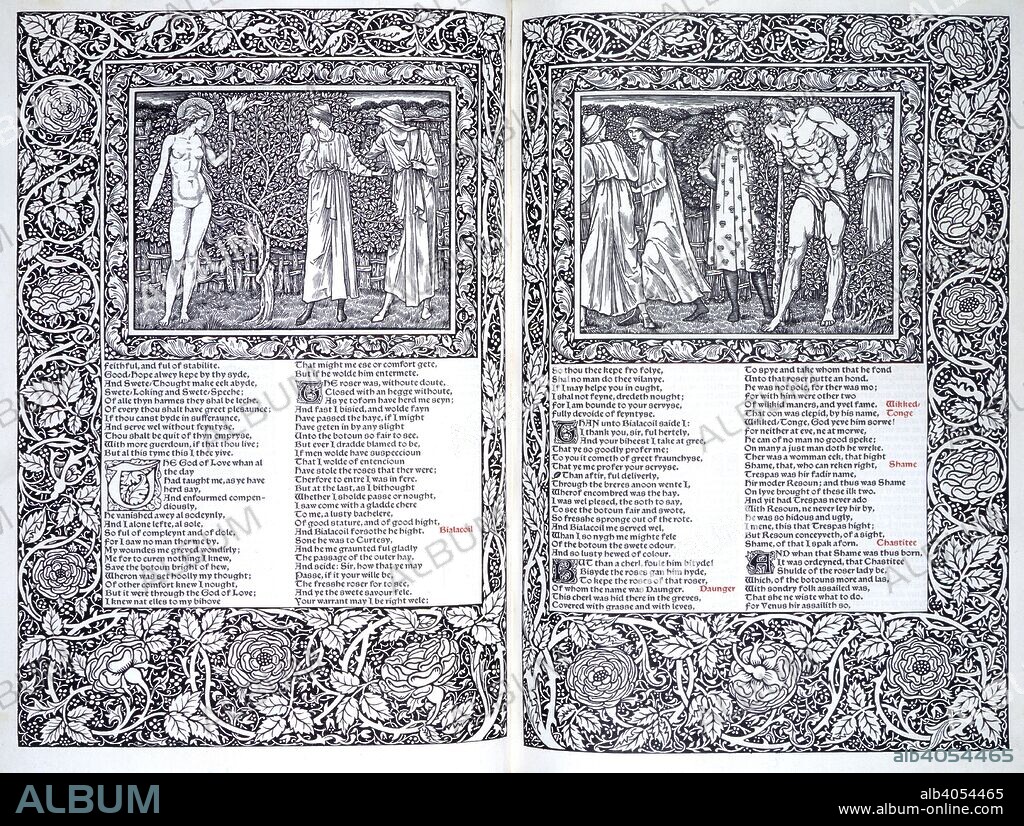 feithful, and ful of stabilite.
Good-Hope alwey kepe by thy syde,
And Swete-Thought make eek abyde,
Swete-Loking and Swete-Speche;
Of alle thyn harmes they shal be leche;
Of every thou shalt have greet plesaunce;
If thou canst byde in suffraunce,
And serve wel without feyntyse,
Thou shalt be quit of thyn empryse,
With more guerdoun, if that thou live;
But al this tyme this I thee yive.
THE God of Love whan al
the day
Had taught me, as ye have
herd say,
And enfourmed compen-
diously,
he vanished awey al sodeynly,
And I alone lefte, al sole,
So ful of compleynt and of dole,
for I saw no man ther me by.
My woundes me greved wondirly;
Me for to curen nothing I knew,
Save the botoun bright of hew,
Wheron was set hoolly my thought;
Of other comfort knew I nought,
But it were through the God of Love;
I knew nat elles to my bihove
That might me ese or comfort gete,
But if he wolde him entermete.
THE roser was, withoute doute,
Closed with an hegge withoute,
As ye to-forn have herd me seyn;
And fast I bisied, and wolde fayn
have passed the haye, if I might
have geten in by any slight
Unto the botoun so fair to see.
But ever I dradde blamed to be,
If men wolde have suspeccioun
That I wolde of entencioun
have stole the roses that ther were;
Therfore to entre I was in fere.
But at the last, as I bithought
Whether I sholde passe or nought,
I saw come with a gladde chere
To me, a lusty bachelere,
Of good stature, and of good hight,
And Bialacoil forsothe he hight. Bialacoil
Sone he was to Curtesy,
And he me graunted ful gladly
The passage of the outer hay,
And seide: Sir, how that ye may
Passe, if it your wille be,
The fresshe roser for to see,
And ye the swete savour fele.
Your warrant may I be right wele;
So thou thee kepe fro folye,
Shal no man do thee vilanye.
If I may helpe you in ought,
I shal not feyne, dredeth nought;
for I am bounde to your servyse,
fully devoide of feyntyse.
THAN unto Bialacoil saide I:
I thank you, sir, ful hertely,
And your biheest I take at gree,
That ye so goodly profer me;
To you it cometh of greet fraunchyse,
That ye me profer your servyse.
Than aftir, ful deliverly,
Through the breres anoon wente I,
Wherof encombred was the hay.
I was wel plesed, the soth to say,
To see the botoun fair and swote,
So fresshe spronge out of the rote.
And Bialacoil me served wel,
Whan I so nygh me mighte fele
Of the botoun the swete odour,
And so lusty hewed of colour.
BUT than a cherl, foule him bityde!
Bisyde the roses gan him hyde,
To kepe the roses of that roser,
Of whom the name was Daunger. Daunger
This cherl was hid there in the greves,
Covered with grasse and with leves,
To spye and take whom that he fond
Unto that roser putte an hond.
He was not sole, for ther was mo;
for with him were other two
Of wikkid maners, and yvel fame. Wikked-
That oon was clepid, by his name, Tonge
Wikked-Tonge, God yeve him sorwe!
for neither at eve, ne at morwe,
He can of no man no good speke;
On many a just man doth he wreke.
Ther was a womman eek, that hight
Shame, that, who can reken right, Shame
Trespas was hir fadir name,
Hir moder Resoun; and thus was Shame
On lyve brought of these ilk two.
And yit had Trespas never ado
With Resoun, ne never ley hir by,
He was so hidous and ugly,
I mene, this that Trespas hight;
But Resoun conceyveth, of a sight,
Shame, of that I spak aforn. Chastitee
AND whan that Shame was thus born,
It was ordeyned, that Chastitee
Shulde of the roser lady be,
Which, of the botouns more and las,
With sondry folk assailed was,
That she ne wiste what to do.
for Venus hir assailith so,
alb4054465
ALBUM
alb4054465
www.album-online.com